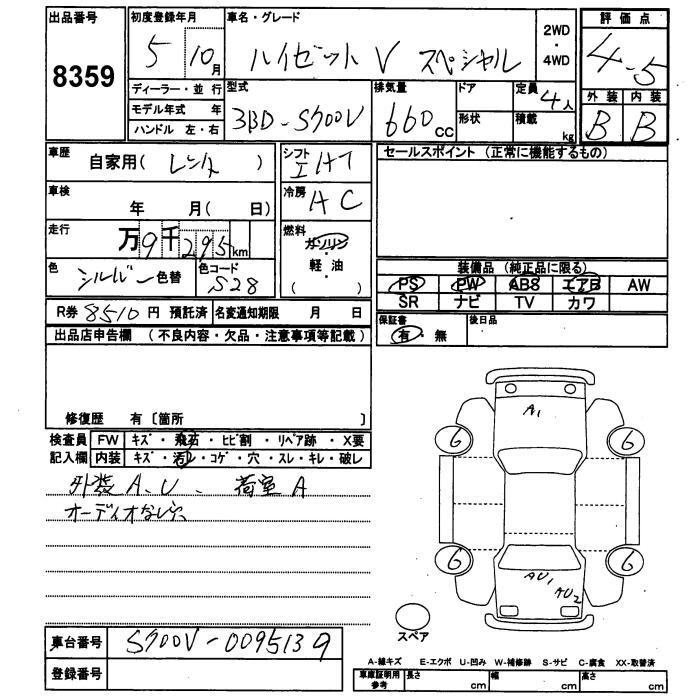 出品番号 初度登録年月 車名・グレード 評価点
8359 5 10月 ハイゼット V スペシャル 2WD・4WD 4.5
ディーラー・並行 型式 排気量 ドア 定員 4人 外装 内装
モデル年式 年 3BD-S700V 660cc B B
ハンドル 左・右 形状 積載 kg
車歴 自家用( レンタ ) シフト 冷房 AC セールスポイント (正常に機能するもの)
車検 年 月( 日)
走行 万9千295km 燃料 ガソリン・軽油( )
色 シルバー 色替 色コード S28 装備品 (純正品に限る)
PS PW ABS エアB AW
SR ナビ TV カワ
R券 8510円 預託済 名変通知期限 月 日 保証書 有・無 後日品
出品店申告欄 (不良内容・欠品・注意事項等記載)
修復歴 有〔箇所 〕
検査員 FW キズ・飛石・ヒビ割・リペア跡・X要
記入欄 内装 キズ・汚レ・コゲ・穴・スレ・キレ・破レ
外装 A、U 、 荷室 A
オーディオなし
A1
6 6
6 6
AU1 AU2
スペア
車台番号 S700V-0095139
登録番号
A-線キズ E-エクボ U-凹み W-補修跡 S-サビ C-腐食 XX-取替済
車庫証明用参考 長さ cm 幅 cm 高さ cm